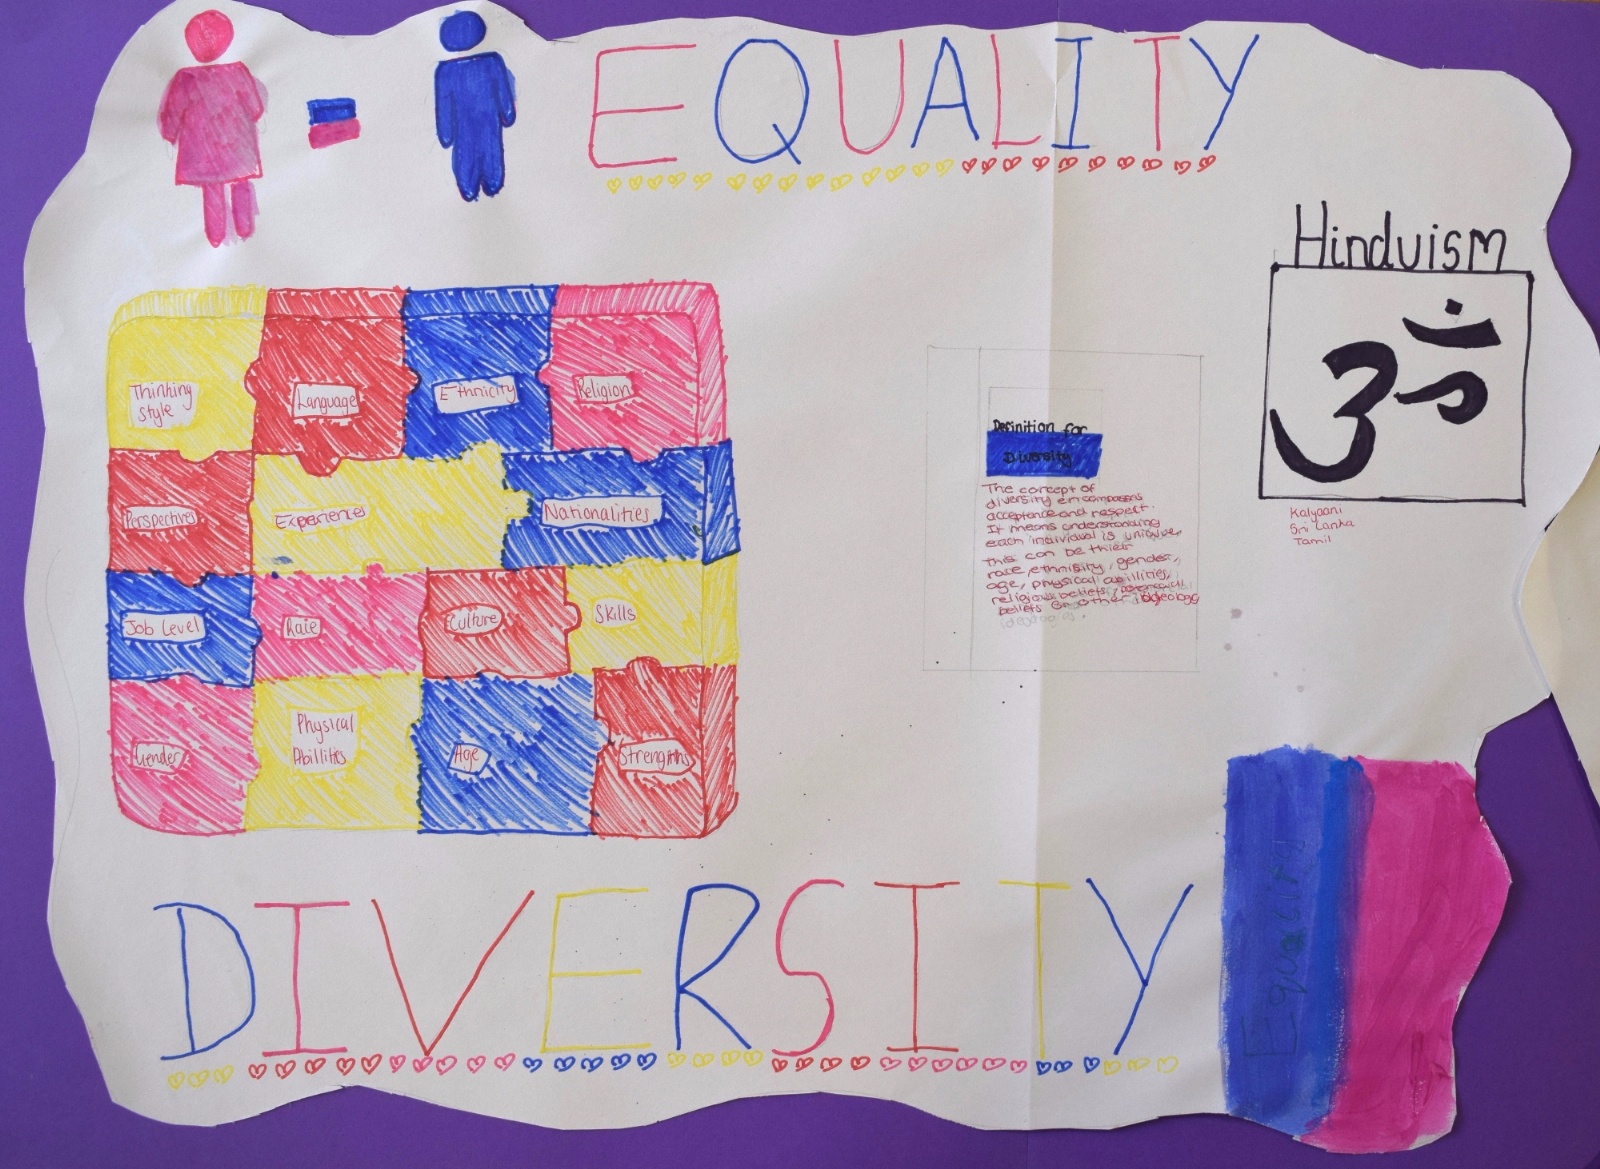 EQUALITY
Hinduism
ॐ
Kalyaani
Sri Lanka
Tamil
Thinking
Style
Language
Ethnicity
Religion
Perspectives
Experience
Nationalities
Job Level
Race
Culture
Skills
Gender
Physical
Abillities
Age
Strengths
Definition for
Diversity
The concept of
diversity encompasses
acceptance and respect.
It means understanding
each individual is unique,
This can be thier
race, ethnisity, gender,
age, physical abillities,
religious beliefs,
beliefs or other
ideologies.
DIVERSITY
Equality